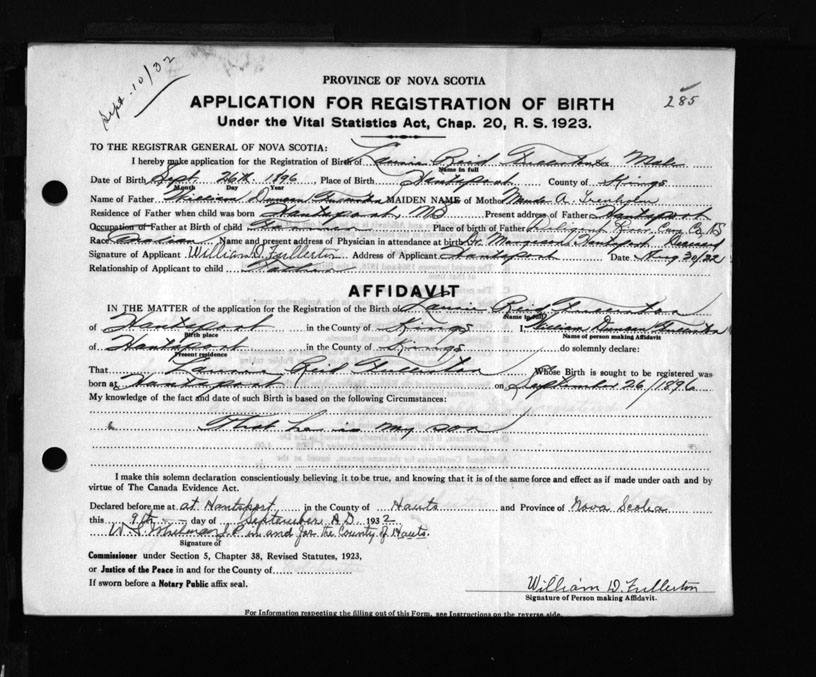 Sept. 10/32
285
PROVINCE OF NOVA SCOTIA
APPLICATION FOR REGISTRATION OF BIRTH
Under the Vital Statistics Act, Chap. 20, R. S. 1923.
TO THE REGISTRAR GENERAL OF NOVA SCOTIA:
I hereby make application for the Registration of Birth of Laurie Reid Fullerton Sex Male
Name in full
Date of Birth Sept 26th. 1896, Place of Birth Hantsport County of Kings
Month Day Year
Name of Father William Duncan Fullerton MAIDEN NAME of Mother A.
Residence of Father when child was born Hantsport, NS Present address of Father Hantsport
Occupation of Father at Birth of child Place of birth of Father River
Race Name and present address of Physician in attendance at birth Dr. Margeson Hantsport Deceased
Signature of Applicant William D. Fullerton Address of Applicant Hantsport Date Aug 30/32
Relationship of Applicant to child Father
AFFIDAVIT
IN THE MATTER of the application for the Registration of the Birth of Laurie Reid Fullerton
Name in full
of Hantsport in the County of Kings I, William Duncan Fullerton
Birth place Name of person making Affidavit
of Hantsport in the County of Kings do solemnly declare:
Present residence
That Laurie Reid Fullerton Whose Birth is sought to be registered was
born at Hantsport on September 26/1896
My knowledge of the fact and date of such Birth is based on the following Circumstances:
That he is my son
I make this solemn declaration conscientiously believing it to be true, and knowing that it is of the same force and effect as if made under oath and by
virtue of The Canada Evidence Act.
Declared before me at at Hantsport in the County of Hants and Province of Nova Scotia
this 9th day of September A.D. 1932
W. J.P. in and for the County of Hants.
Signature of
Commissioner under Section 5, Chapter 38, Revised Statutes, 1923,
or Justice of the Peace in and for the County of
If sworn before a Notary Public affix seal.
William D. Fullerton
Signature of Person making Affidavit.
For Information respecting the filling out of this Form, see Instructions on the reverse side.